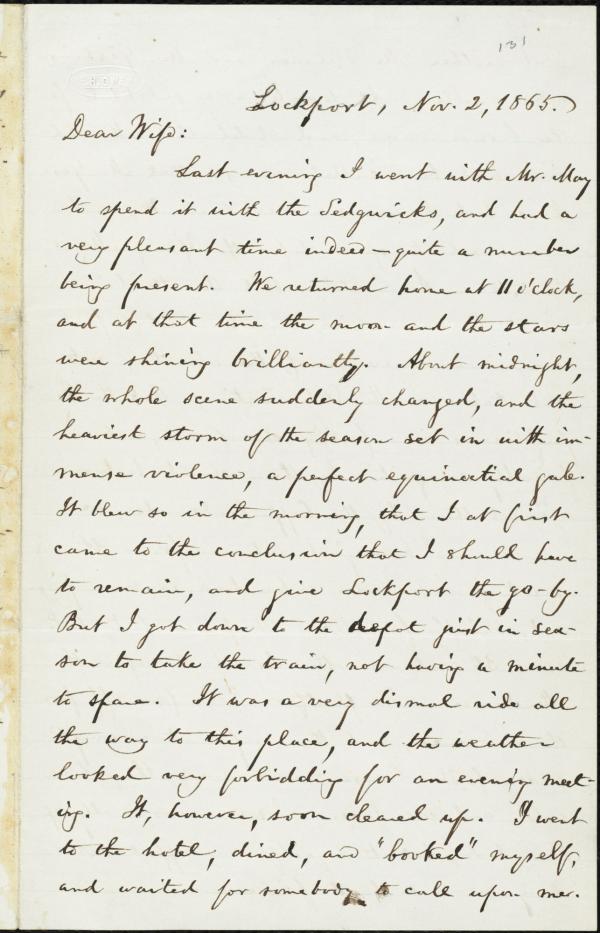 131
Lockport, Nov. 2, 1865.
Dear Wife:
Last evening I went with Mr. May
to spend it with the Sedgwicks, and had a
very pleasant time indeed—quite a number
being present. We returned home at 11 o'clock,
and at that time the moon and the stars
were shining brilliantly. About midnight,
the whole scene suddenly changed, and the
heaviest storm of the season set in with im-
mense violence, a perfect equinoctial gale.
It blew so in the morning, that I at first
came to the conclusion that I should have
to remain, and give Lockport the go-by.
But I got down to the depot just in sea-
son to take the train, not having a minute
to spare. It was a very dismal ride all
the way to this place, and the weather
looked very forbidding for an evening meet-
ing. It, however, soon cleared up. I went
to the hotel, dined, and "booked" myself,
and waited for somebody to call upon me.